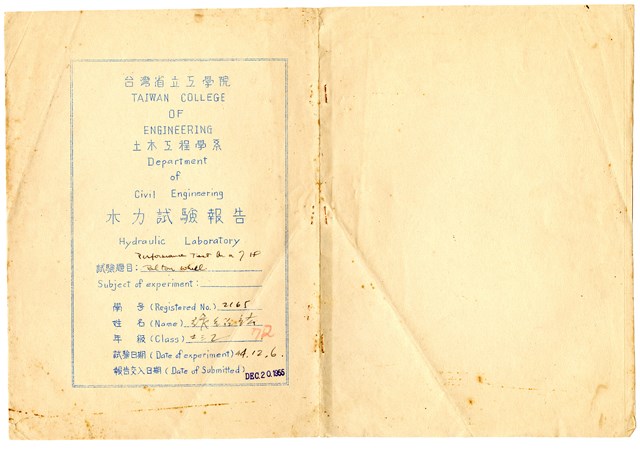 台灣省立工學院
TAIWAN COLLEGE
OF
ENGINEERING
土木工程學系
Department
of
Civil Engineering
水力試驗報告
Hydraulic Laboratory
Performance Test on a 7 HP
試驗題目: Pelton Wheel
Subject of experiment:
學 号 (Registered No.) 2165
姓 名 (Name)
年 級 (Class) 土三乙
72
試驗日期 (Date of experiment) 44.12.6.
報告交入日期 (Date of Submitted) DEC.20.1955